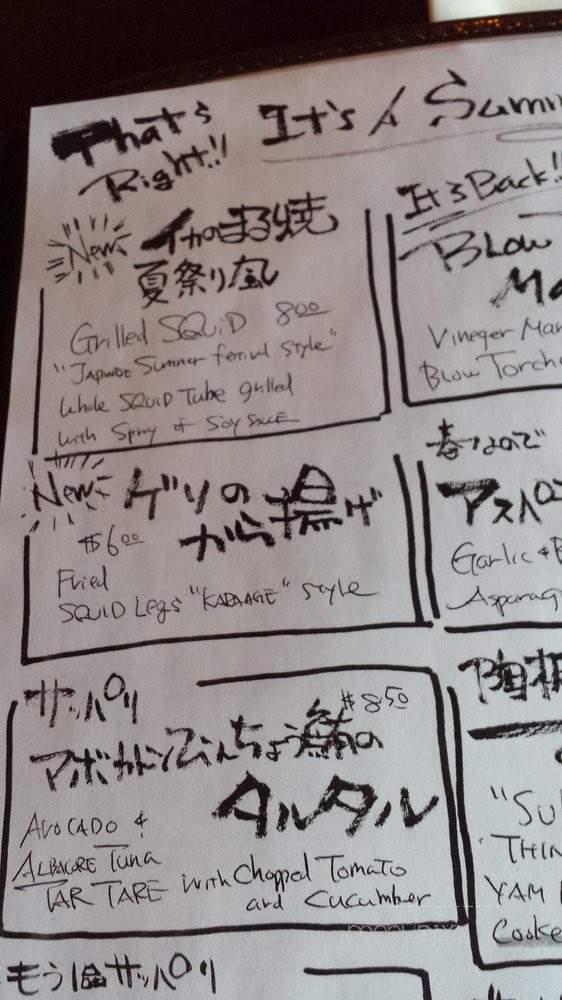 That's
Right!!
It's A Summ
New
イカのまる焼
夏祭り風
Grilled SQUID 8.00
"JAPANESE Summer festival style"
Whole SQUID Tube grilled
with Spray of Soy SAUCE
It's Back!!
BLOW
Ma
Vinegar Mar
Blow Torche
New
ゲソの
から揚げ
$6.00
Fried
SQUID Legs "KARAAGE" style
春なので
アスパラ
Garlic &
Asparag
サッパリ
$8.50
アボカドとびんちょう鮪の
タルタル
AVOCADO &
ALBACORE Tuna
TAR TARE with Chopped Tomato
and Cucumber
"Su
THIN
YAM
Cooke
もう1品サッパリ